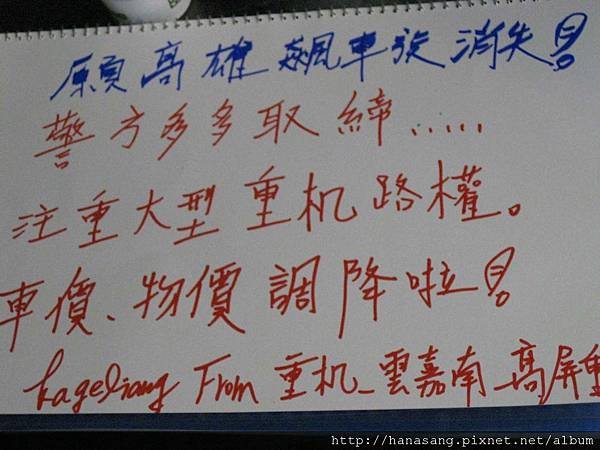 願高雄飆車族消失!
警方多多取締.....
注重大型重机路權。
車價、物價調降啦!
From 重机_雲嘉南_高屏重
http://hanasang.pixnet.net/album